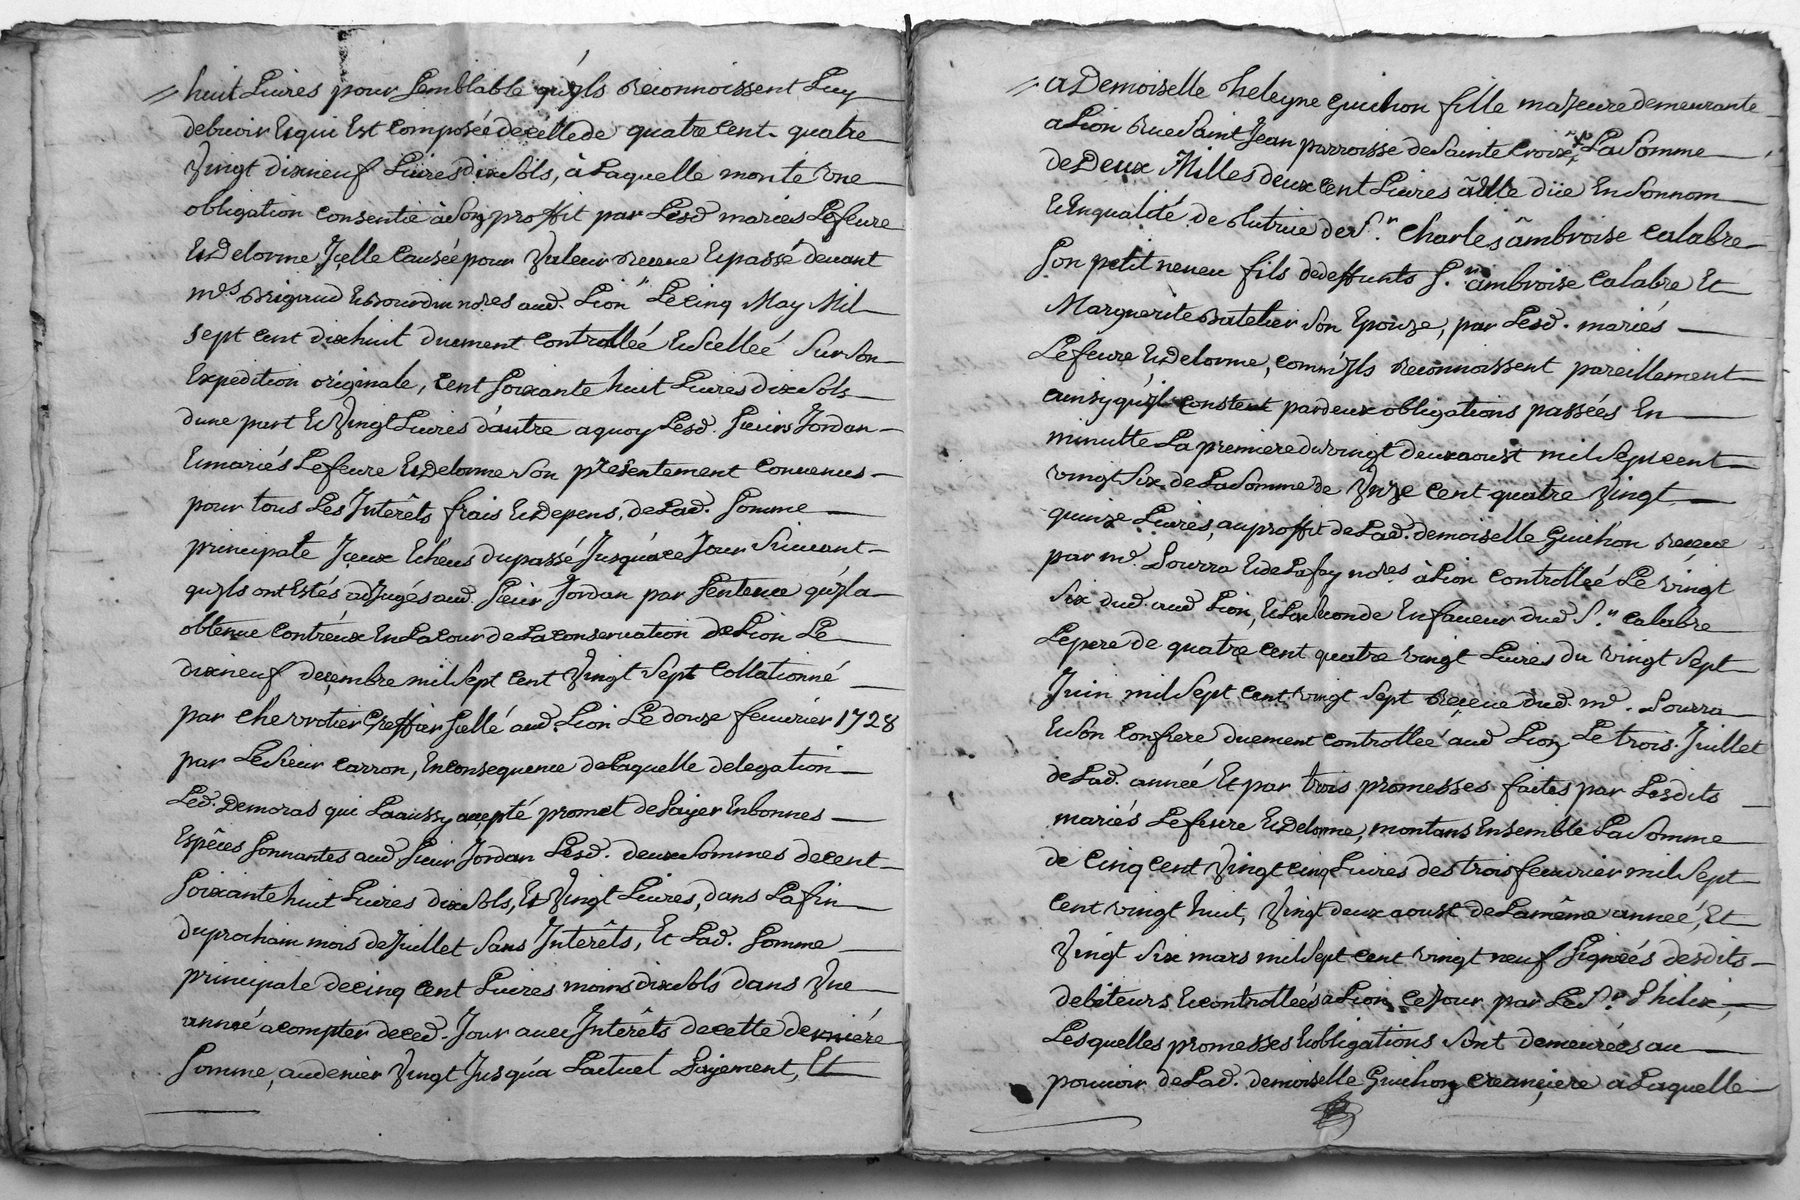 huit Livres pour Semblable qu'jls reconnoissent Luy
debvoir Et qui Est composée de celle de quatre cent quatre
Vingt dixneuf Livres dix Sols, à Laquelle monte Vne
obligation consentie à Son proffit par Lesd mariés Lefevre
Et Delorme Jcelle Causée pour Valeur Receue Et passé devant
mes Brigaud Et Bourdin nores aud. Lion Le Cinq May Mil
sept cent dixhuit duement controllée Et Scellée Sur Son
Expedition originale, cent Soixante huit Livres dix Sols
dune part Et Vingt Livres d'autre a quoy Lesd. Sieurs Jordan
Et mariés Lefevre Et Delorme Son presentement convenus
pour tous Les Jnterêts frais Et Depens, de Lad. Somme
principale Jceux Echeus du passé Jusqu'a ce Jour Suivant
qu'jls ont Estés adjugés aud. Sieur Jordan par Sentence qu'jl a
obtenue contr'eux En La Cour de La conservation de Lion Le
dixneuf decembre mil Sept Cent Vingt Sept Collationné
par chervrotier Greffier Scellé aud. Lion Le douze fevvrier 1728
par Le Sieur Carron, En consequence de Laquelle delegation
Led. Demoras qui La aussy accepté promet de Payer En bonnes
Espêces Sonnantes aud Sieur Jordan Lesd. deux Sommes de cent
Soixante huit Livres dix Sols, Et Vingt Livres, dans La fin
du prochain mois de Juillet Sans Jnterêts, Et Lad. Somme
principale de cinq cent Livres moins dix Sols dans Vne
année a compter de ced. Jour avec Jnterêts de cette derniére
Somme, au denier Vingt Jusqu'a Lactuel Payement, Et
a Demoiselle heleyne Guichon fille majeure demeurante
a Lion Rue Saint Jean parroisse de Sainte Croix, La Somme
de Deux Milles deux cent Livres à Elle düe En Son nom
Et En qualité de Tutrice de Sr. Charles âmbroise Calabre
Son petit neveu fils de deffunts Sr. ambroise Calabre Et
Marguerite Batelier Son Epouze, par Lesd. mariés
Lefevre Et Delorme, comm'jls reconnoissent pareillement
ainsy qu'jl constent par deux obligations passées En
minutte La premiere du vingt deux aoust mil Sept cent
vingt Six de La Somme de Vnze cent quatre Vingt
quinze Livres, au proffit de Lad. demoiselle Guichon receue
par me. Dourra Et de Lafay nores à Lion controllée Le vingt
Six dud. aud Lion, Et La Seconde En faveur dud Sr. Calabre
Le pere de quatre cent quatre vingt Livres du vingt Sept
Juin mil Sept Cent vingt Sept Receue dud. me. Dourra
Et Son Confrere duement controllée aud Lion Le trois Juillet
de Lad. année Et par trois promesses faites par Lesdits
mariés Lefevre Et Delorme, montans Ensemble La Somme
de Cinq cent Vingt cinq Livres des trois fevvrier mil Sept
Cent vingt huit, Vingt deux aoust de La même année, Et
Vingt Six mars mil Sept cent vingt neuf Signées desdits
debiteurs Et controllées a Lion ce Jour par Le Sr. Philix,
Lesquelles promesses Et obligations Sont demeurées au
pouvoir de Lad. demoiselle Guichon creanciere a Laquelle